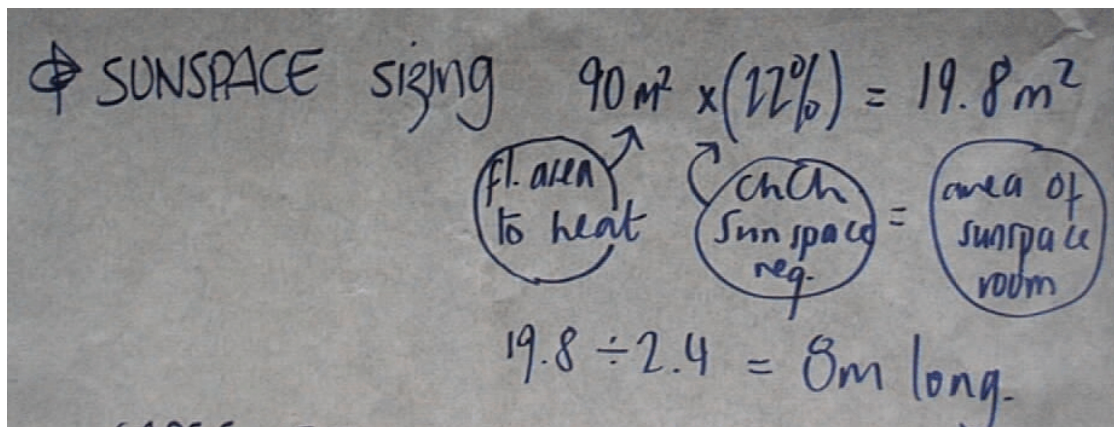 SUNSPACE sizing 90m² x(22%) = 19.8m²
fl. area to heat
ChCh Sunspace req.
=
area of sunspace room
19.8 ÷ 2.4 = 8m long.